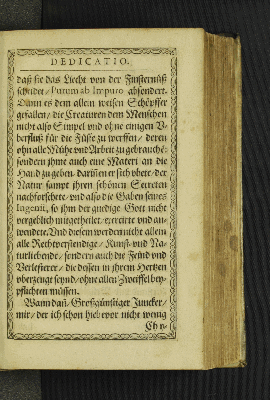 DEDICATIO.
daß sie das Liecht von der Finsternüß
scheidet / Purum ab Impuro absondert.
Dann es dem allein weisen Schöpffer
gefallen / die Creaturen dem Menschen
nicht also Simpel und ohne einigen V-
berfluß für die Füsse zu werffen / deren
ohn alle Mühe und Arbeit zu gebrauchē:
sondern ihme auch eine Materi an die
Hand zu geben darüber er sich übete / der
Natur sampt ihren schönen Secreten
nachforschete / und also die Gaben seines
Ingenii, so ihm der gnedige Gott nicht
vergeblich mitgetheilet / exercirte und an-
wendete. Und diesem werden nicht allein
alle Rechtverstendige / Kunst- und Na-
turliebende / sondern auch die Feind und
Verlesterer / die dessen in ihrem Hertzen
überzeugt seynd / ohne allen Zweiffel bey-
pflichten müssen.
Wann dañ / Großgünstiger Juncker /
mir / der ich schon hiebevor nicht wenig